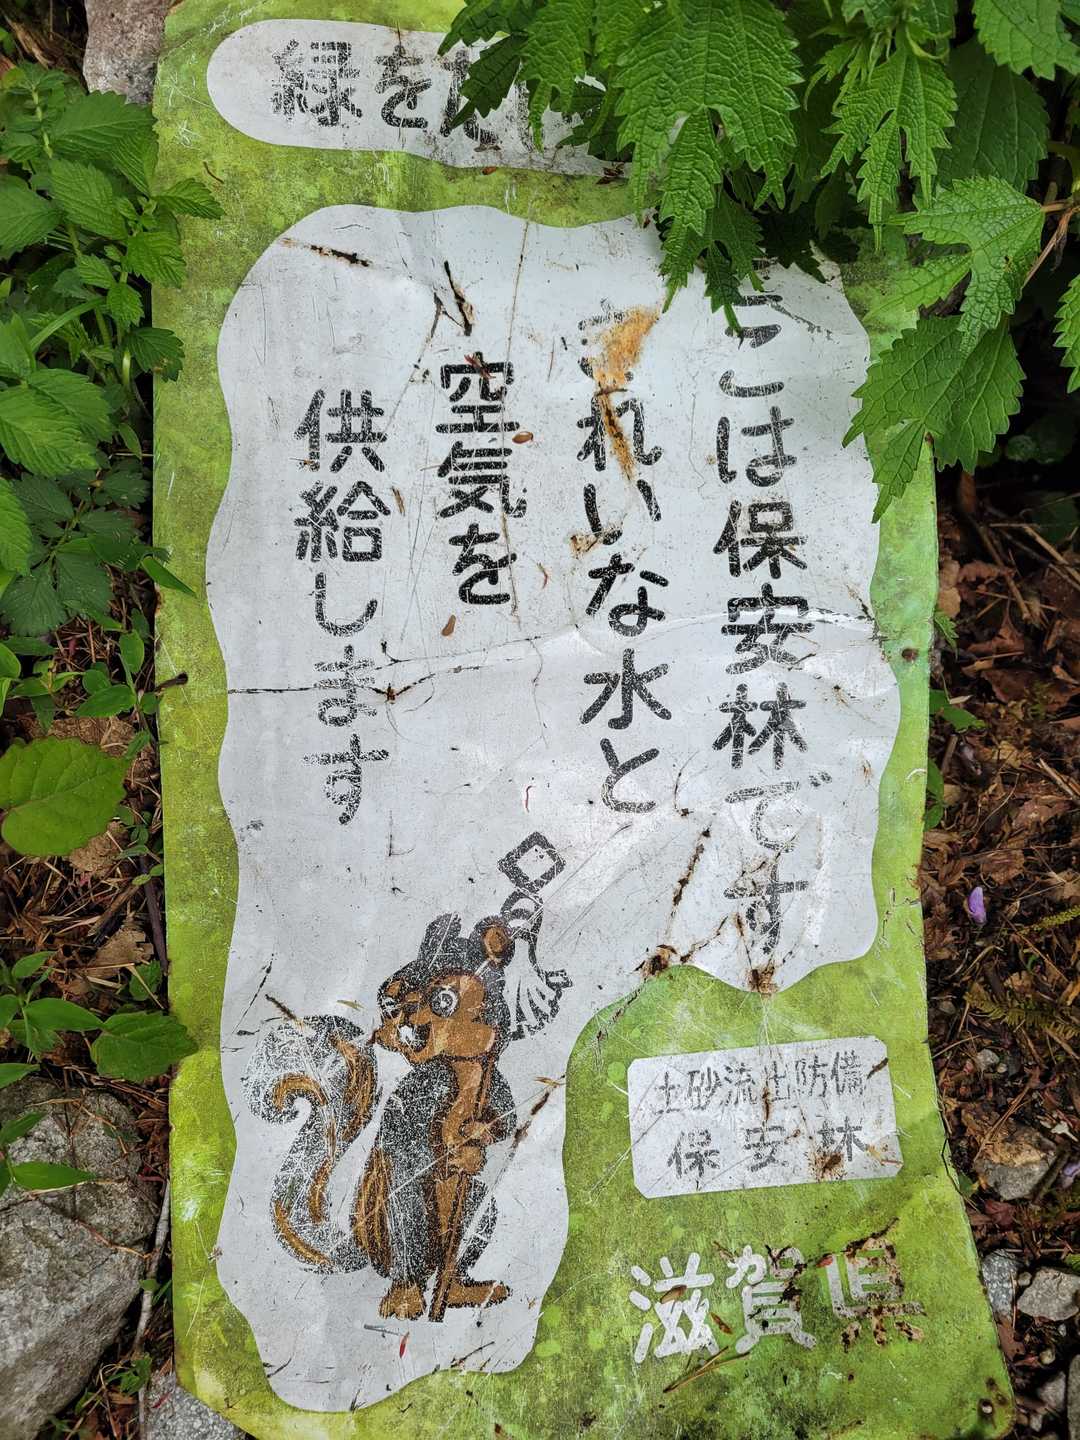 緑を
ここは保安林です
きれいな水と
空気を
供給します
土砂流出防備
保安林
滋賀県